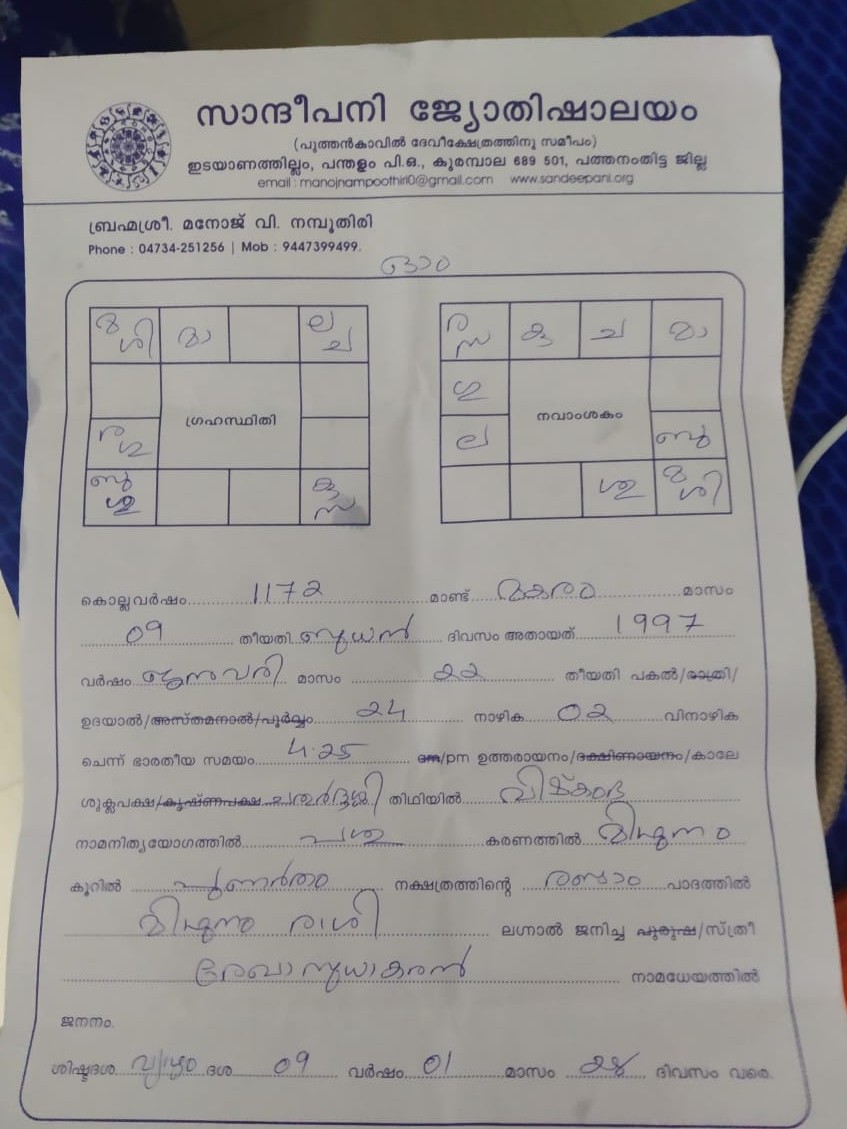 സാന്ദീപനി ജ്യോതിഷാലയം
(പുത്തൻകാവിൽ ദേവീക്ഷേത്രത്തിനു സമീപം)
ഇടയാണത്തില്ലം, പന്തളം പി.ഒ., കുരമ്പാല 689 501, പത്തനംതിട്ട ജില്ല
email : manojnampoothiri0@gmail.com www.sandeepani.org
ബ്രഹ്മശ്രീ. മനോജ് വി. നമ്പൂതിരി
Phone : 04734-251256 | Mob : 9447399499.
ഓം
മ ശി മാ ല ച
ഗ്രഹസ്ഥിതി
ര ഗു
ബു ശു കു സ
ര സ കു ച മാ
ഗു
നവാംശകം
ല ബു
ശു മ ശി
കൊല്ലവർഷം 1172 മാണ്ട് മകരം മാസം
09 തീയതി ബുധൻ ദിവസം അതായത് 1997
വർഷം ജനുവരി മാസം 22 തീയതി പകൽ/രാത്രി/
ഉദയാൽ/അസ്തമനാൽ/പൂർവ്വം 24 നാഴിക 02 വിനാഴിക
ചെന്ന് ഭാരതീയ സമയം 4.25 am/pm ഉത്തരായനം/ദക്ഷിണായനം/കാലേ
ശുക്ലപക്ഷ/കൃഷ്ണപക്ഷ ചതുർദ്ദശി തിഥിയിൽ വിഷ്കംഭ
നാമനിത്യയോഗത്തിൽ പശു കരണത്തിൽ മിഥുനം
കൂറിൽ പുണർതം നക്ഷത്രത്തിന്റെ രണ്ടാം പാദത്തിൽ
മിഥുനം രാശി ലഗ്നാൽ ജനിച്ച പുരുഷ/സ്ത്രീ
രേഖാ സുധാകരൻ നാമധേയത്തിൽ
ജനനം.
ശിഷ്ടദശ വ്യാഴം ദശ 09 വർഷം 01 മാസം 28 ദിവസം വരെ.